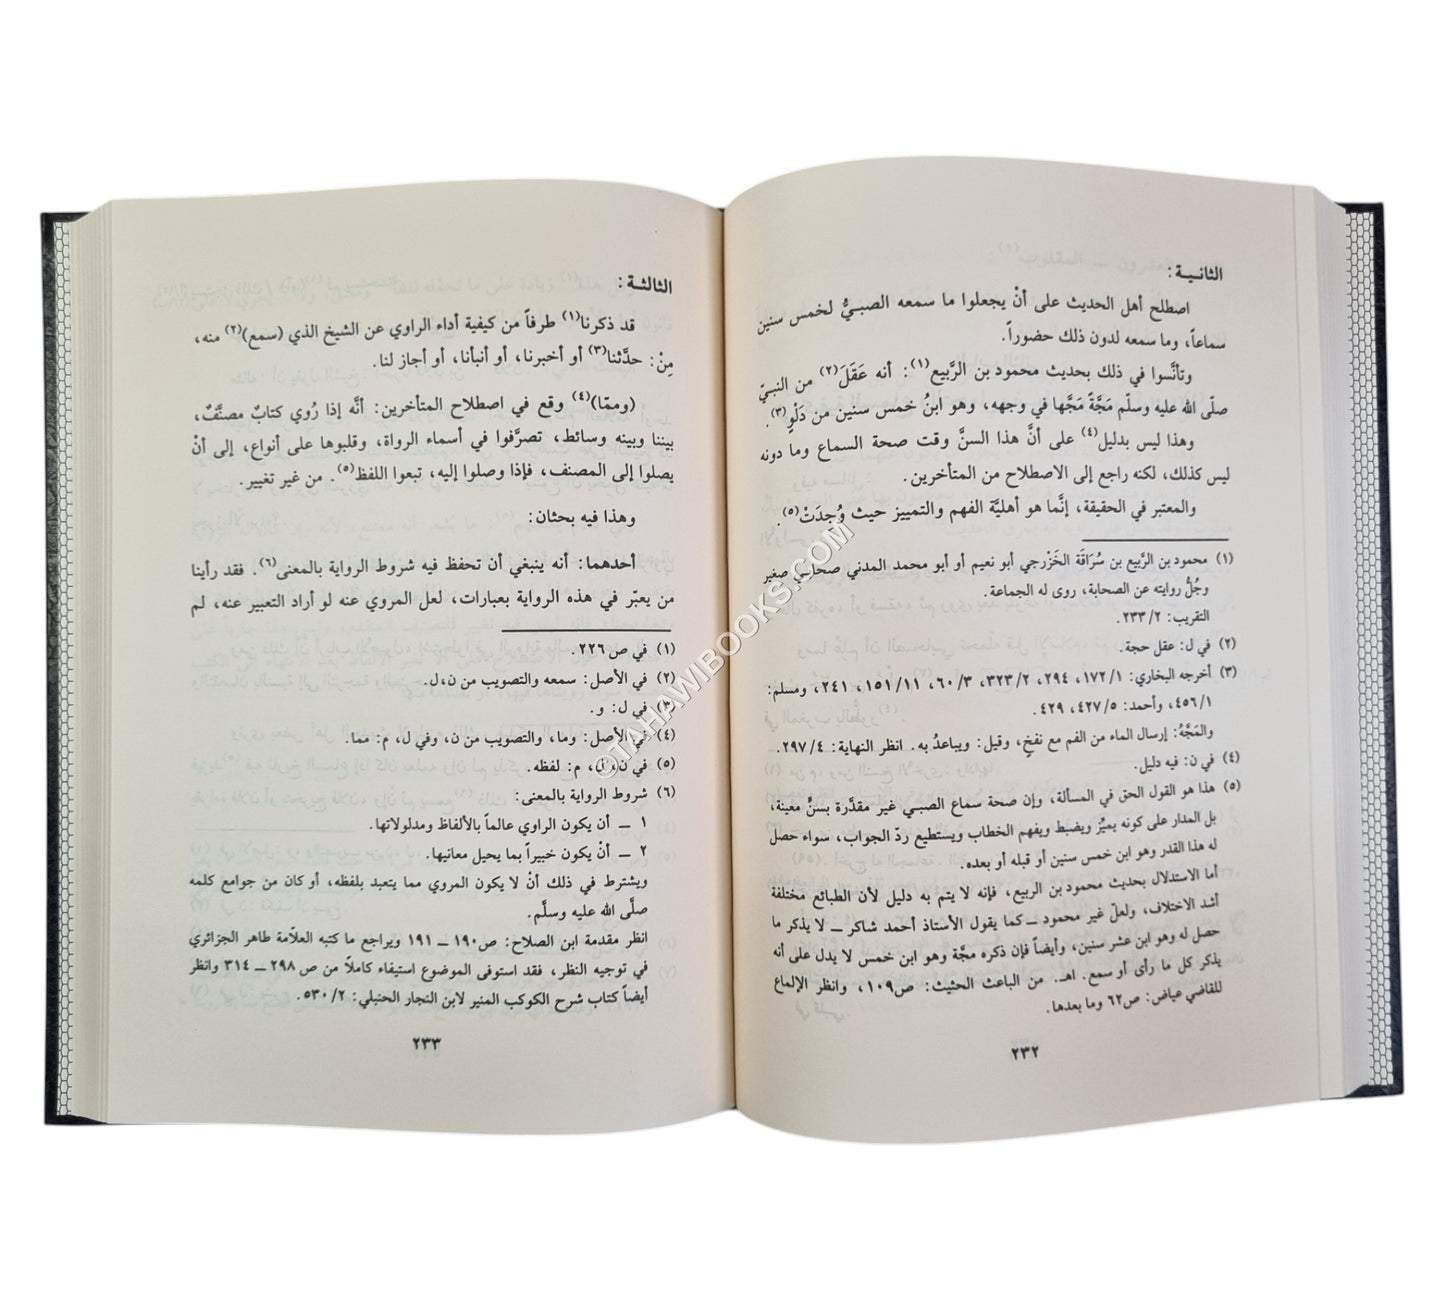 الثانية:
اصطلح أهل الحديث على أنْ يجعلوا ما سمعه الصبيُّ لخمس سنين
سماعاً، وما سمعه لدون ذلك حضوراً.
وتأنَّسوا في ذلك بحديث محمود بن الرَّبيع(١): أنه عَقَلَ(٢) من النبيّ
صلّى الله عليه وسلّم مَجَّةً مَجَّها في وجهه، وهو ابنُ خمس سنين من دَلْوٍ(٣).
وهذا ليس بدليل(٤) على أنَّ هذا السنَّ وقت صحة السماع وما دونه
ليس كذلك، لكنه راجع إلى الاصطلاح من المتأخرين.
والمعتبر في الحقيقة، إنَّما هو أهليَّة الفهم والتمييز حيث وُجدَتْ(٥).
(١) محمود بن الرَّبيع بن سُرَاقَة الخَزْرجي أبو نعيم أو أبو محمد المدني صحابي صغير
وجُلُّ روايته عن الصحابة، روى له الجماعة.
التقريب: ٢/ ٢٣٣.
(٢) في ل: عقل حجة.
(٣) أخرجه البخاري: ١/ ١٧٢، ٢٩٤، ٢/ ٣٢٣، ٣/ ٦٠، ١١/ ١٥١، ٢٤١، ومسلم:
١/ ٤٥٦، وأحمد: ٥/ ٤٢٧، ٤٢٩.
والمَجَّةُ: إرسال الماء من الفم مع نفخٍ، وقيل: ويباعدُ به. انظر النهاية: ٤/ ٢٩٧.
(٤) في ن: فيه دليل.
(٥) هذا هو القول الحق في المسألة، وإن صحة سماع الصبي غير مقدَّرة بسنٍّ معينة،
بل المدار على كونه يميِّز ويضبط ويفهم الخطاب ويستطيع ردّ الجواب، سواء حصل
له هذا القدر وهو ابن خمس سنين أو قبله أو بعده.
أما الاستدلال بحديث محمود بن الربيع، فإنه لا يتم به دليل لأن الطبائع مختلفة
أشد الاختلاف، ولعلّ غير محمود ــ كما يقول الأستاذ أحمد شاكر ــ لا يذكر ما
حصل له وهو ابن عشر سنين، وأيضاً فإن ذكره مجَّة وهو ابن خمس لا يدل على أنه
يذكر كل ما رأى أو سمع. اهـ. من الباعث الحثيث: ص١٠٩، وانظر الإلماع
للقاضي عياض: ص٦٢ وما بعدها.
٢٣٢
الثالثة:
قد ذكرنا(١) طرفاً من كيفية أداء الراوي عن الشيخ الذي (سمع)(٢) منه،
مِنْ: حدَّثنا(٣) أو أخبرنا، أو أنبأنا، أو أجاز لنا.
(وممّا)(٤) وقع في اصطلاح المتأخرين: أنَّه إذا رُوي كتابٌ مصنَّفٌ،
بيننا وبينه وسائط، تصرَّفوا في أسماء الرواة، وقلبوها على أنواع، إلى أنْ
يصلوا إلى المصنف، فإذا وصلوا إليه، تبعوا اللفظ(٥). من غير تغيير.
وهذا فيه بحثان:
أحدهما: أنه ينبغي أن تحفظ فيه شروط الرواية بالمعنى(٦). فقد رأينا
من يعبّر في هذه الرواية بعبارات، لعل المروي عنه لو أراد التعبير عنه، لم
(١) في ص ٢٢٦.
(٢) في الأصل: سمعه والتصويب من ن،ل.
(٣) في ل: و.
(٤) في الأصل: وما، والتصويب من ن، وفي ل، م: مما.
(٥) في ن، ل، م: لفظه.
(٦) شروط الرواية بالمعنى:
١ ــ أن يكون الراوي عالماً بالألفاظ ومدلولاتها.
٢ ــ أنْ يكون خبيراً بما يحيل معانيها.
ويشترط في ذلك أنْ لا يكون المروي مما يتعبد بلفظه، أو كان من جوامع كلمه
صلَّى الله عليه وسلَّم.
انظر مقدمة ابن الصلاح: ص١٩٠ ــ ١٩١ ويراجع ما كتبه العلاّمة طاهر الجزائري
في توجيه النظر، فقد استوفى الموضوع استيفاء كاملاً من ص ٢٩٨ ــ ٣١٤ وانظر
أيضاً كتاب شرح الكوكب المنير لابن النجار الحنبلي: ٢/ ٥٣٠.
٢٣٣
©TAHAWIBOOKS.COM